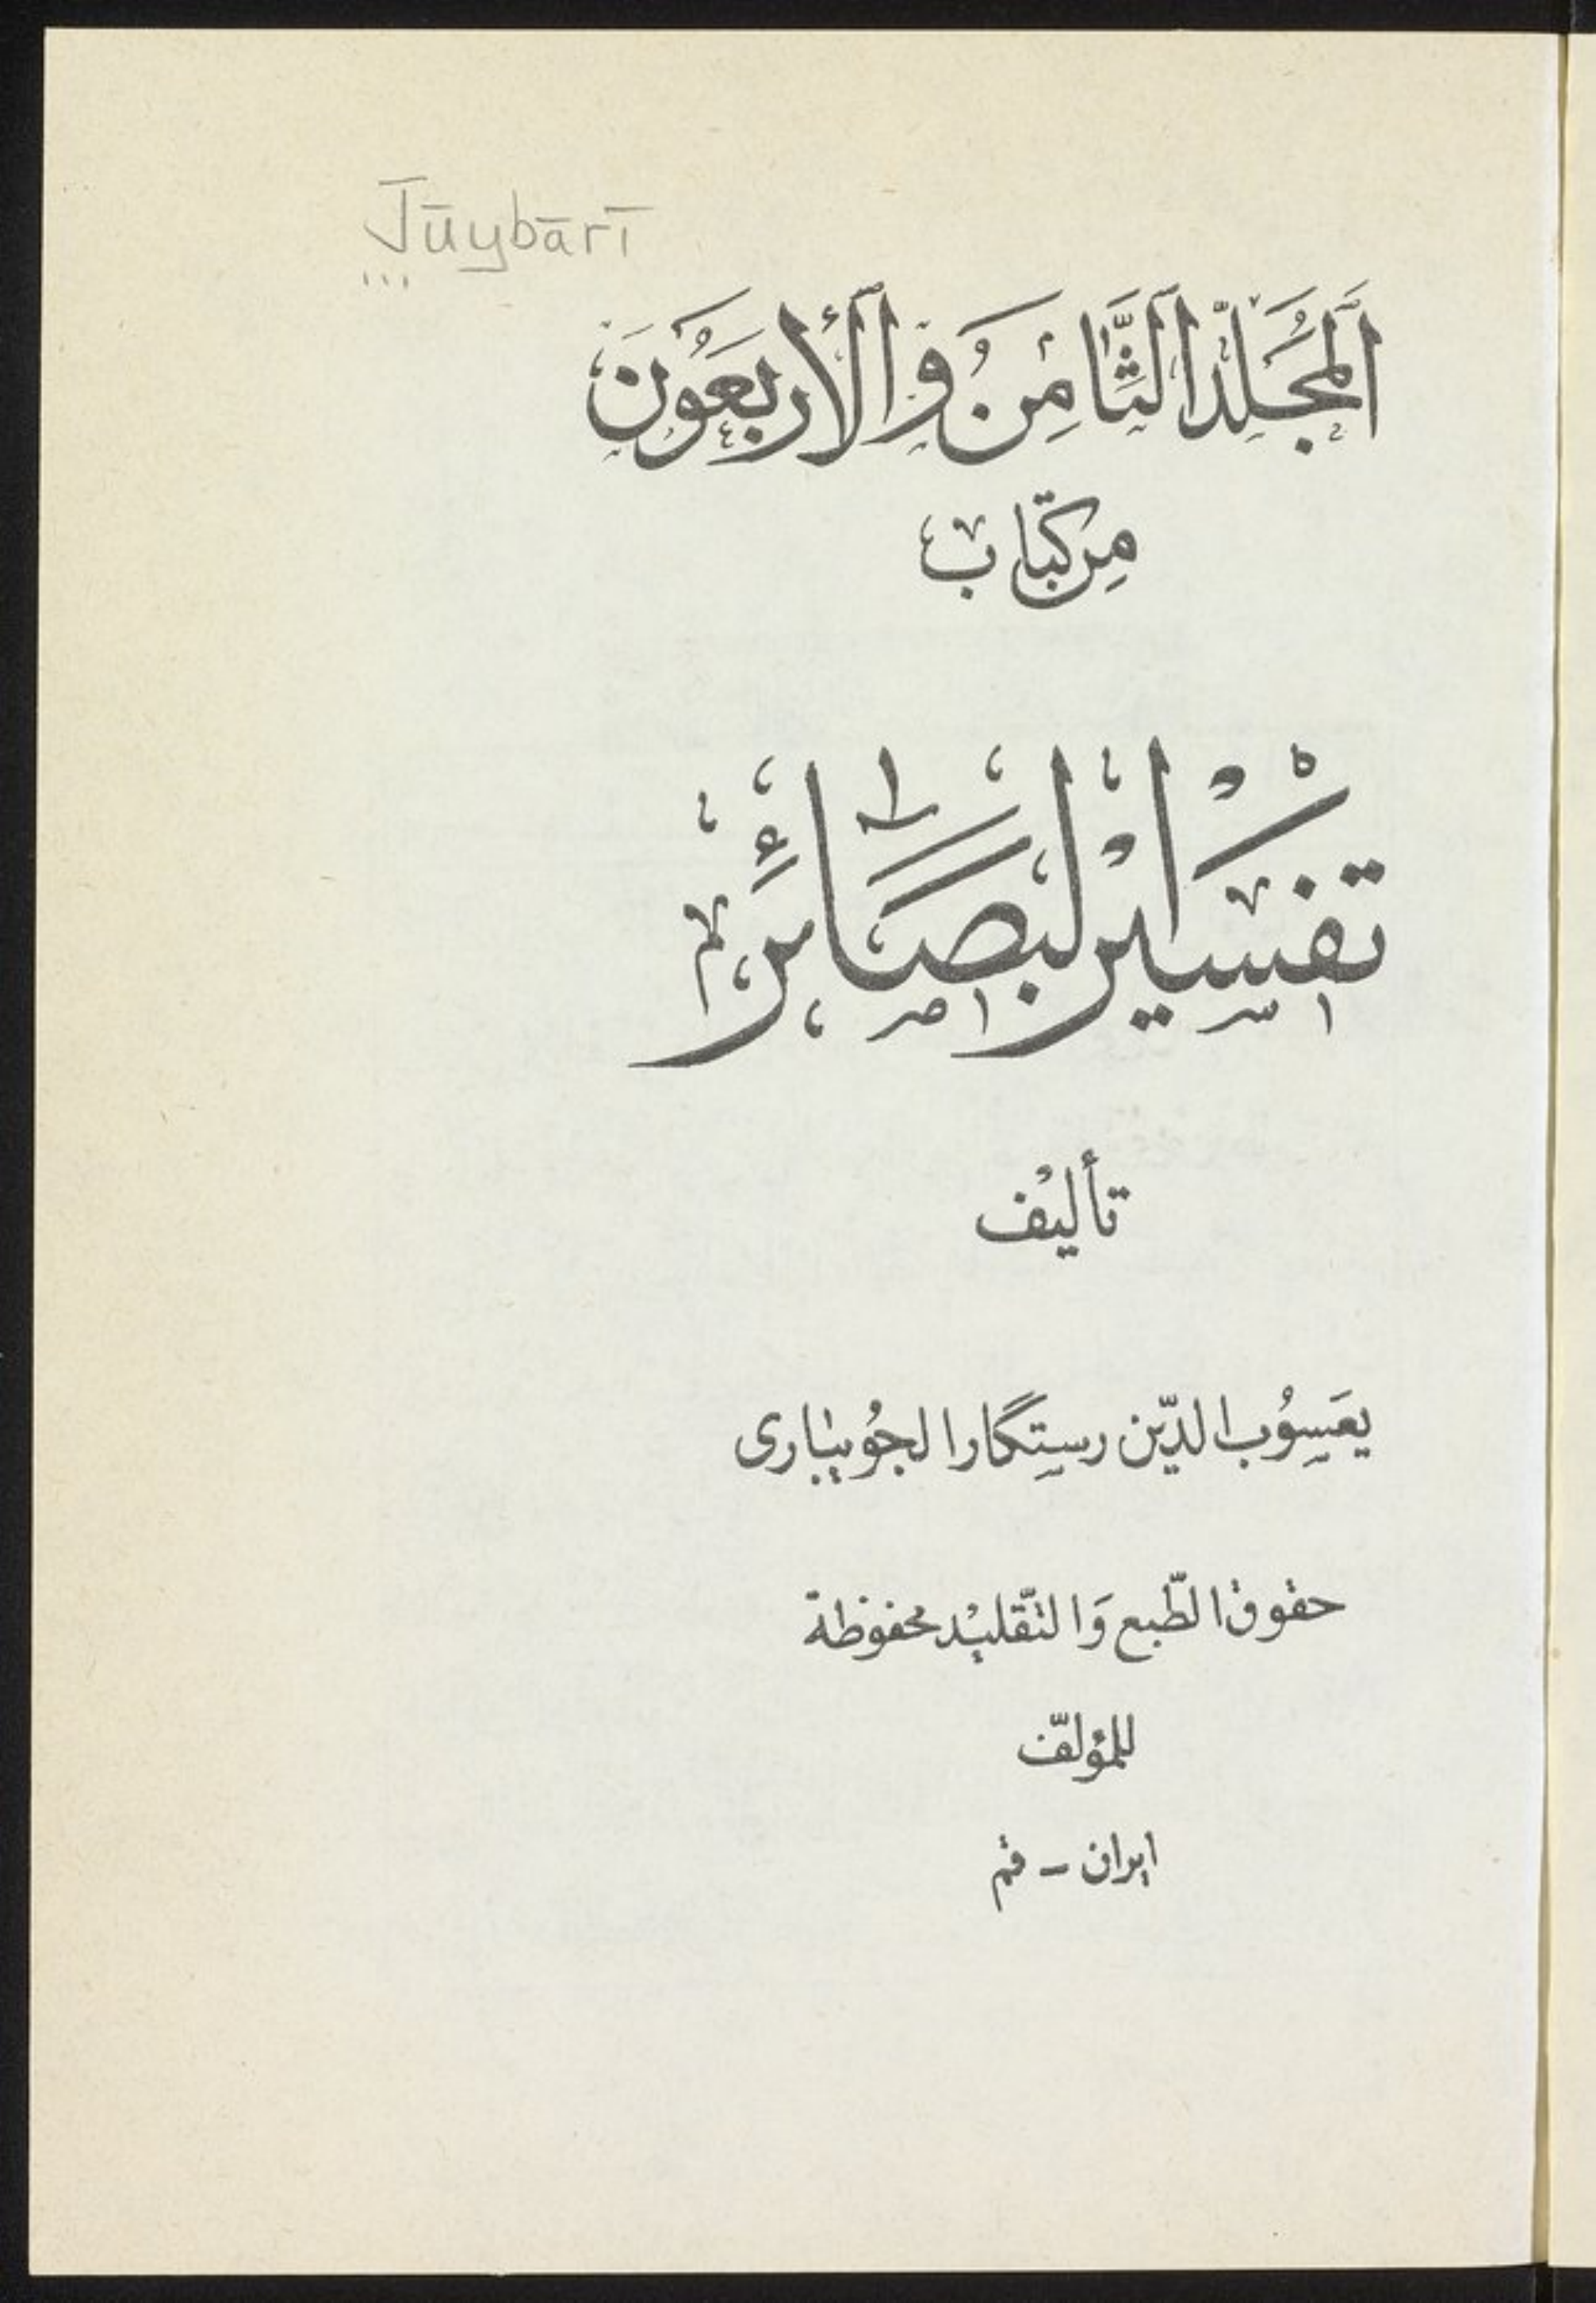 Jūybārī
اَلْمُجَلَّدُ الثَّامِنُ وَالْأَرْبَعُونَ
مِن كتاب
تفسير البصائر
تأليْف
يعَسوُب الدّين رستگار الجوُيبارى
حقوق الطّبع وَالتّقليْد محفوظة
للمؤلّف
ايران - قم